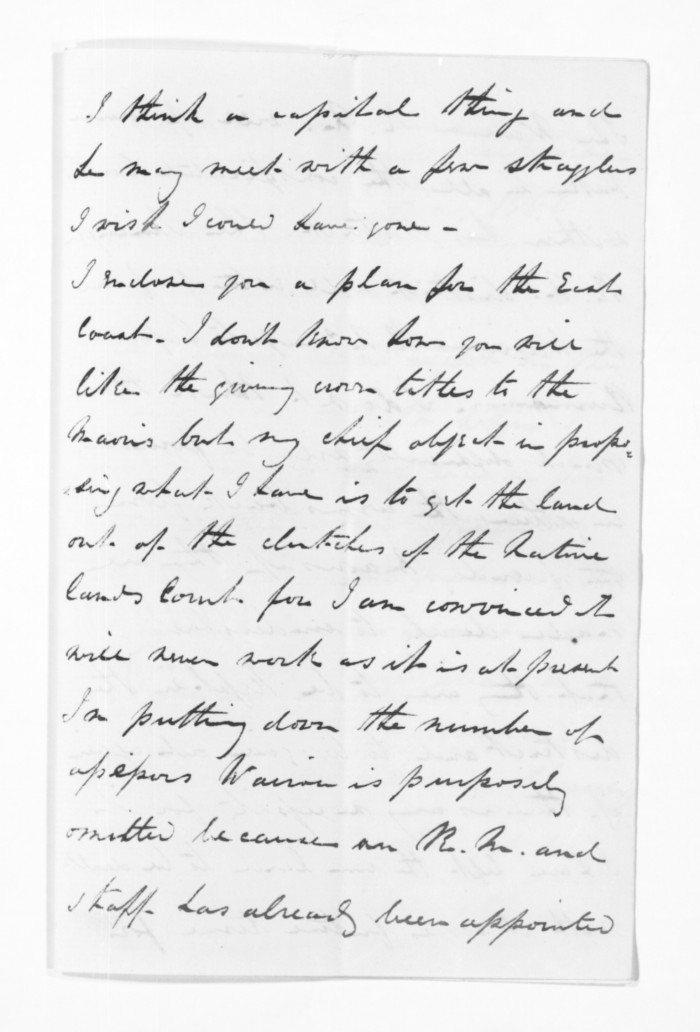 I think a capital thing and
he may meet with a few stragglers
I wish I could have gone -
I enclose you a plan for the East
Coast - I don't know how you will
like the giving crown titles to the
Maoris but my chief object in propo=
sing what I have is to get the land
out of the clutches of the Native
lands Court for I am convinced it
will never work as it is at present
In putting down the number of
assessors Wairoa is purposely
omitted because an R. M. and
staff has already been appointed